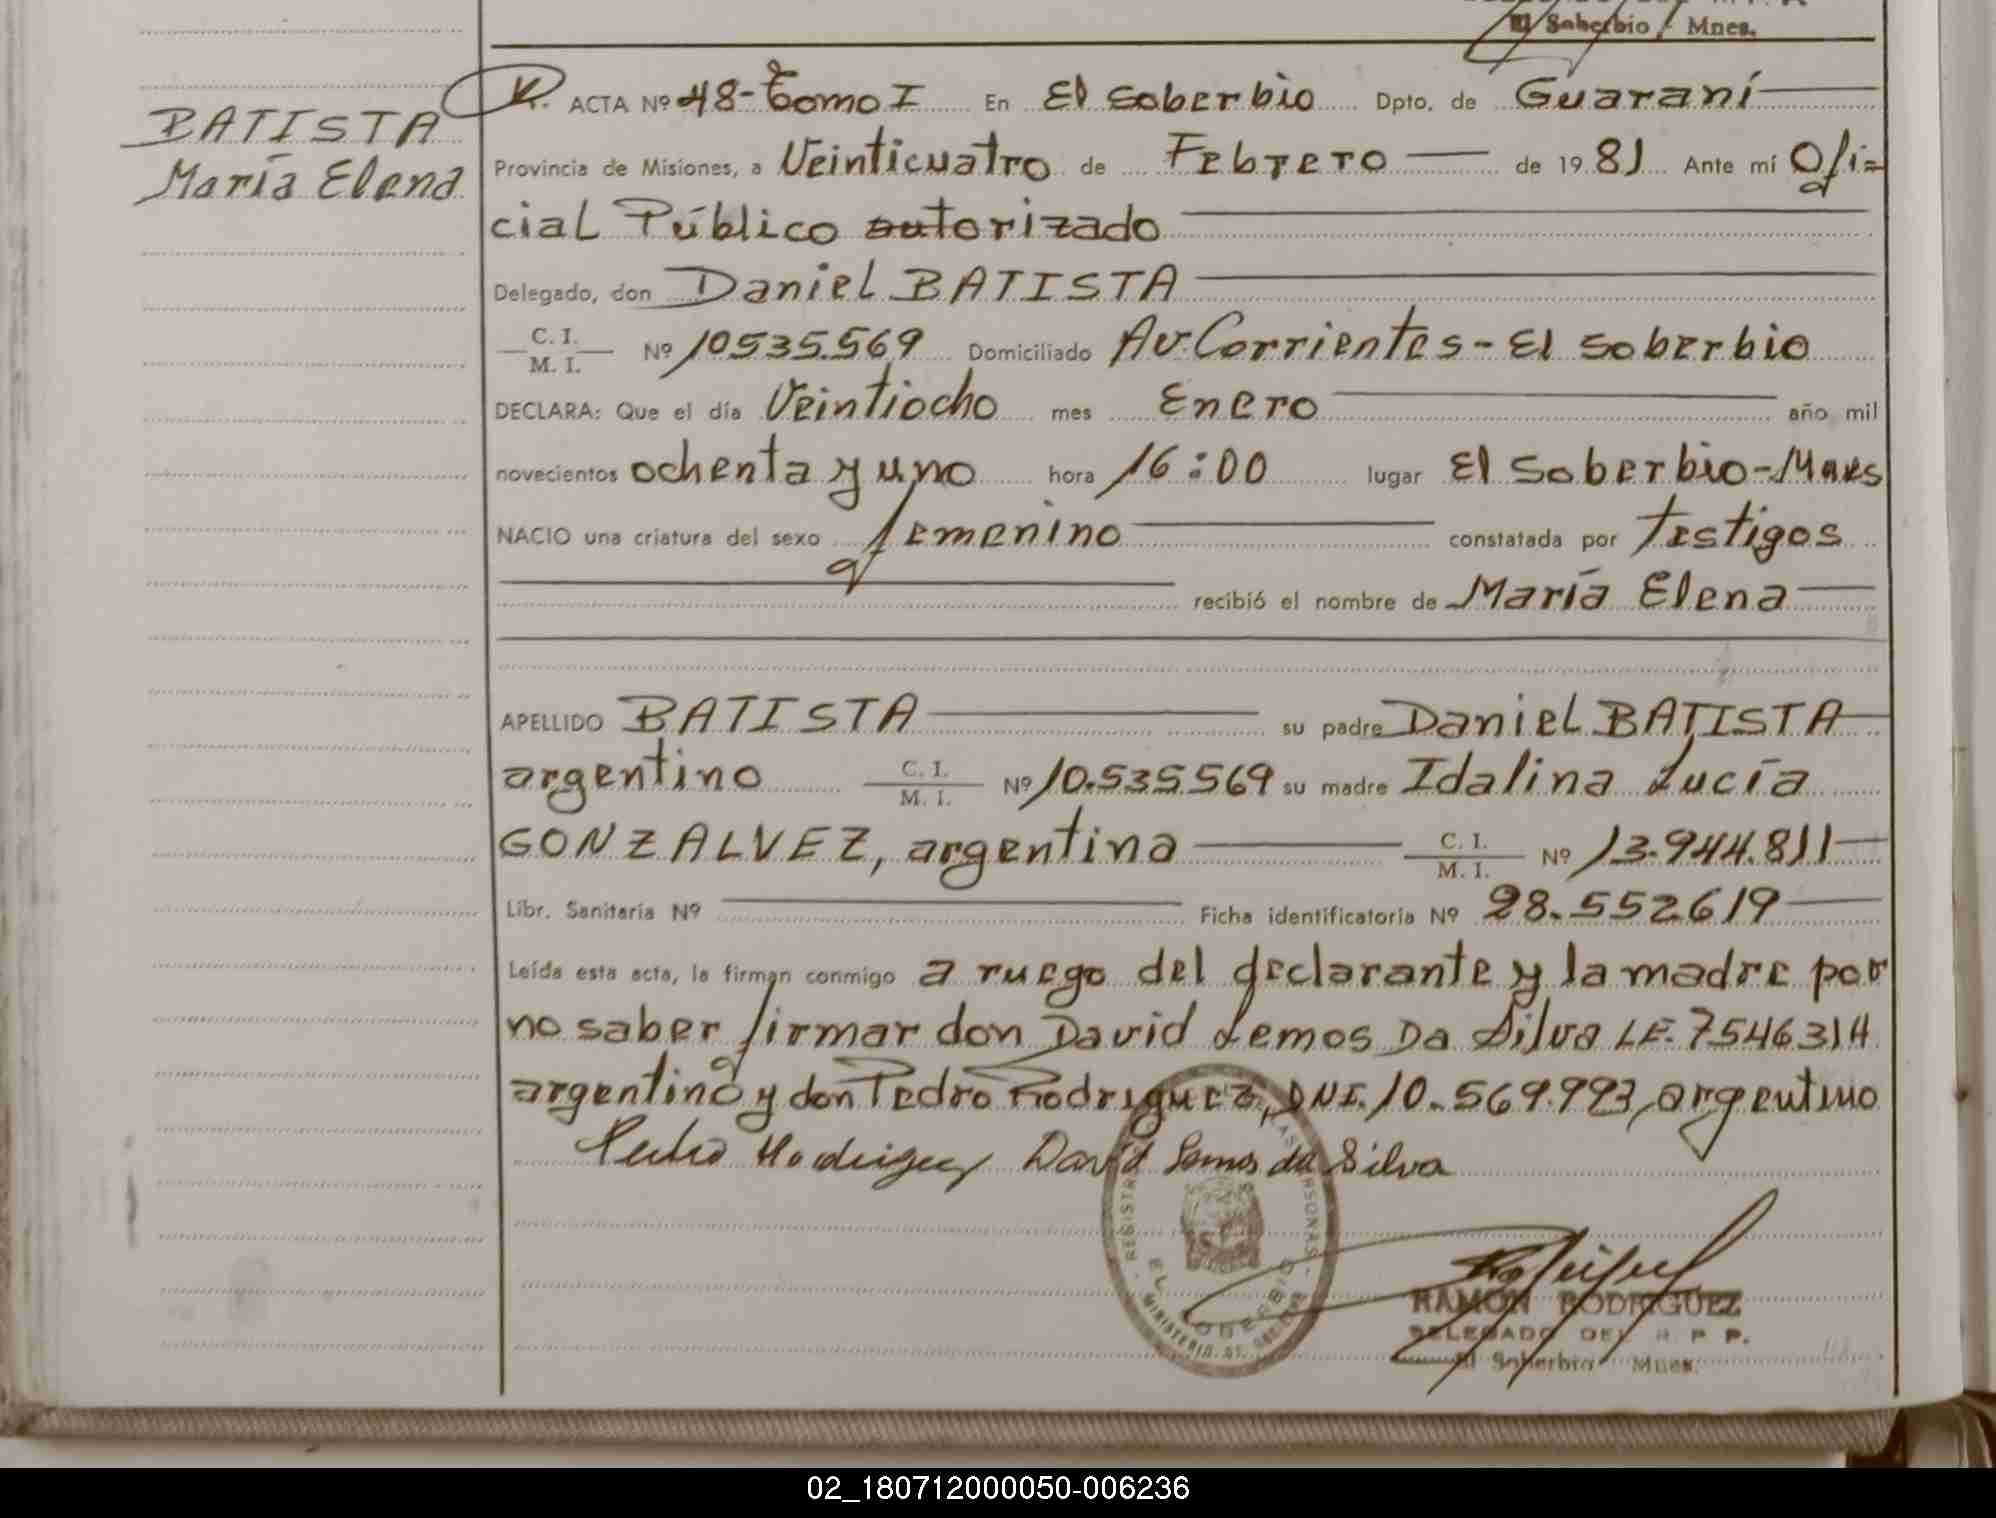 El Soberbio - Mnes.
BATISTA
María Elena
ACTA Nº 48-Tomo I En El Soberbio Dpto. de Guaraní
Provincia de Misiones, a Veinticuatro de Febrero de 1981 Ante mí Ofi=
cial Público autorizado
Delegado, don Daniel BATISTA
C. I.
M. I. Nº 10.535.569 Domiciliado Av. Corrientes - El Soberbio
DECLARA: Que el día Veintiocho mes Enero año mil
novecientos ochenta y uno hora 16:00 lugar El Soberbio-Mnes
NACIO una criatura del sexo femenino constatada por testigos
recibió el nombre de María Elena
APELLIDO BATISTA su padre Daniel BATISTA
argentino C. I. M. I. Nº 10.535.569 su madre Idalina Lucía
GONZALVEZ, argentina C. I. M. I. Nº 13.944.811
Libr. Sanitaria Nº Ficha identificatoria Nº 28.552.619
Leída esta acta, la firman conmigo a ruego del declarante y la madre por
no saber firmar don David Lemos Da Silva LE. 7546314
argentino y don Pedro Rodriguez, DNI. 10.569.993, argentino
Pedro Rodriguez David Lemos da Silva
EL SOBERBIO
RAMON RODRIGUEZ
DELEGADO DEL R P P.
El Soberbio Mnes.
02_180712000050-006236